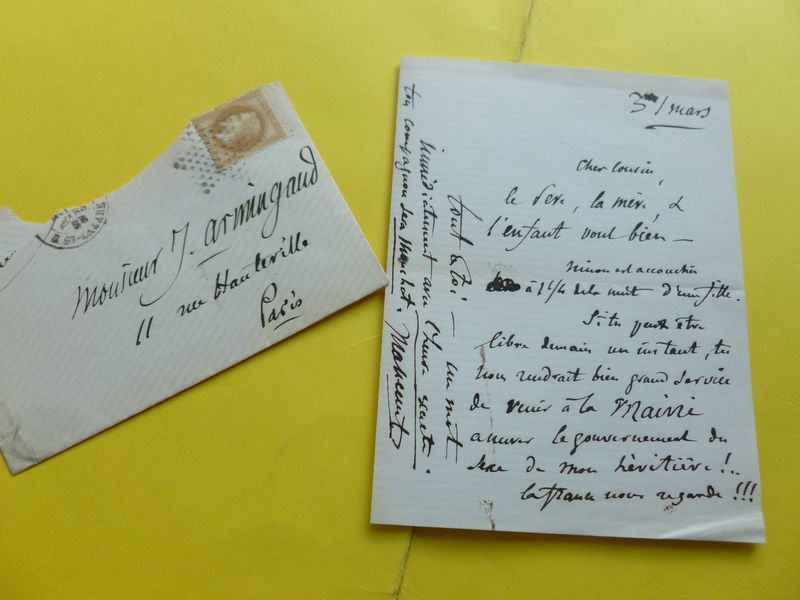 31 mars
Cher Cousin,
le Père, la mère, &
l'enfant vont bien —
Ninon est accouchée
à 1h 1/4 de la nuit d'une fille.
Si tu peux être
libre demain un instant, tu
nous rendrait bien grand service
de venir à la Mairie
assurer le gouvernement du
sexe de mon héritière !..
la france nous regarde !!!
tout à toi — un mot
immédiatement avec l'heure exacte.
ton compagnon sera Manchot.
Monsieur J. Armingaud
11 rue Hauteville
Paris
ST-LAZARE